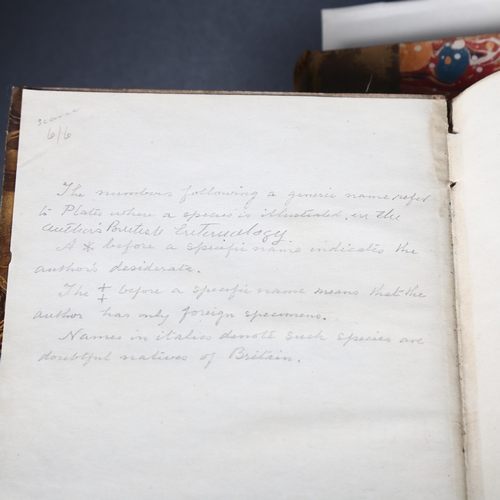 scarce
6/6
The numbers following a generic name refer
to Plates where a species is illustrated, in the
author's British Entomology.
A * before a specific name indicates the
author's desiderata.
The ‡ before a specific name means that the
author has only foreign specimens.
Names in italics denote such species are
doubtful natives of Britain.